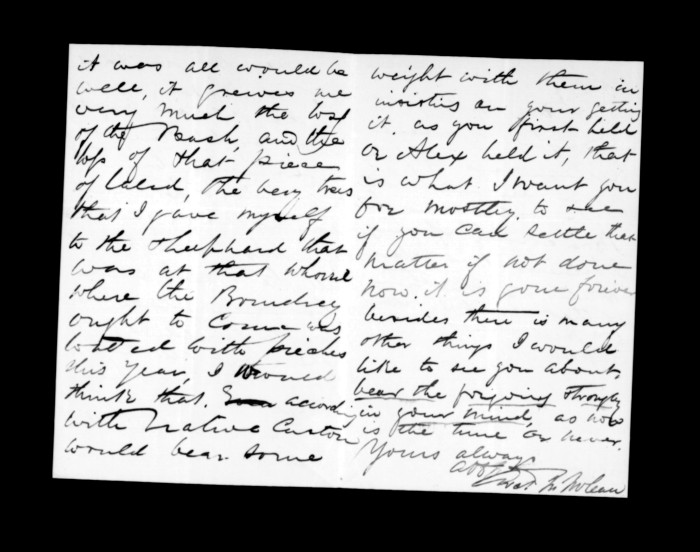 it was all would be
well, it greives me
very much the loss
of the Bush, and the
loss of that piece
of land, the very trees
that I gave myself
to the shephard that
was at that whome
where the Boundrey
ought to come was
loaded with pieches
this year, I would
think that, according
with Native Custom
would bear some
weight with them in
insisting on your getting
it, as you first held
or Alex held it, that
is what I want you
for mostley, to see
if you can settle that
matter if not done
now, it is gone forever
besides there is many
other things I would
like to see you about,
bear the forgoing strongly
in your mind, as now
is the time or never.
Yours always
McLean